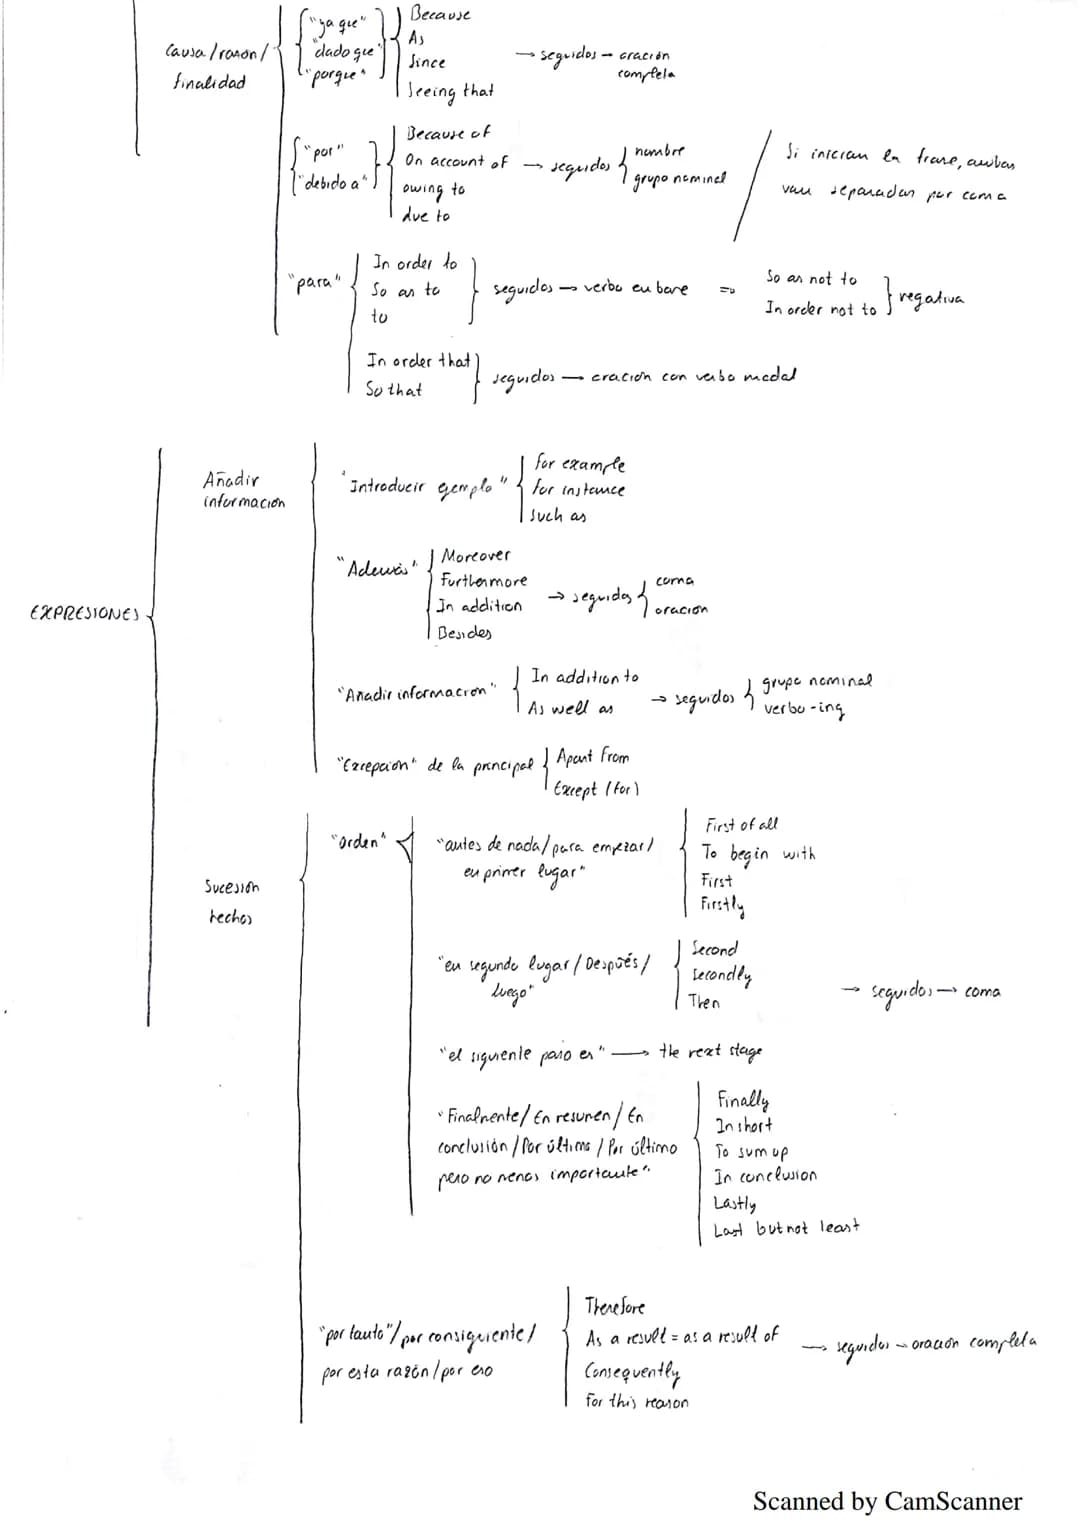 Causa / razón /
finalidad
"ya que"
"dado que"
"porque"
Because
As
Since
Seeing that
→ seguidos – oración
completa
"por"
"debido a"
Because of
On account of
owing to
due to
→ seguidos
nombre
grupo nominal
Si inician la frase, ambas
van separadas por coma
"para"
In order to
So as to
to
seguidos → verbo en base
⇒
So as not to
In order not to
negativa
In order that
So that
seguidos → oración con verbo modal
EXPRESIONES
Añadir
información
"Introducir ejemplo"
for example
for instance
such as
"Además"
Moreover
Furthermore
In addition
Besides
→ seguidos
coma
oración
"Añadir información"
In addition to
As well as
→ seguidos
grupo nominal
verbo -ing
"Excepción" de la principal
Apart from
Except (for)
Sucesión
hechos
"orden"
"antes de nada / para empezar /
en primer lugar"
First of all
To begin with
First
Firstly
"en segundo lugar / Después /
luego"
Second
Secondly
Then
→ seguidos → coma
"el siguiente paso es" → the next stage
"Finalmente / En resumen / En
conclusión / Por último / Por último
pero no menos importante"
Finally
In short
To sum up
In conclusion
Lastly
Last but not least
"por tanto" / por consiguiente /
por esta razón / por eso
Therefore
As a result = as a result of
Consequently
For this reason
→ seguidos → oración completa
Scanned by CamScanner